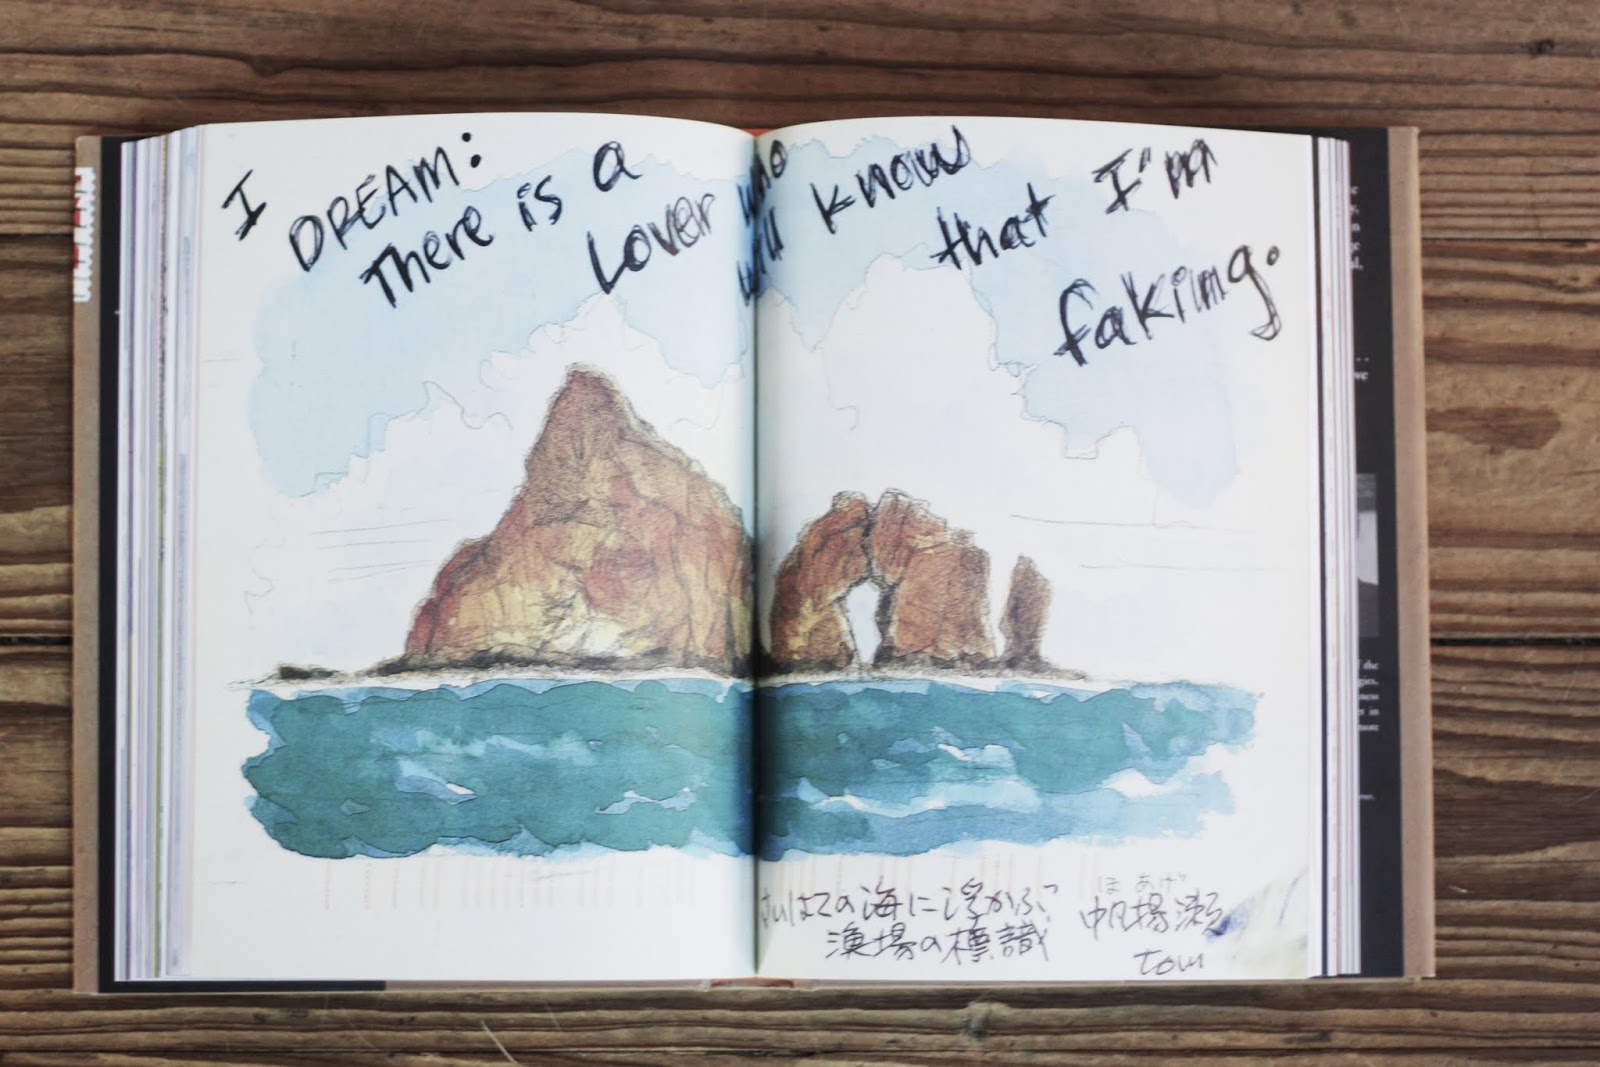 I DREAM:
There is a
Lover who
will know
that I'm
faking.
さいはての海に浮かぶ
漁場の標識
ほあげ
帆揚瀬
tow